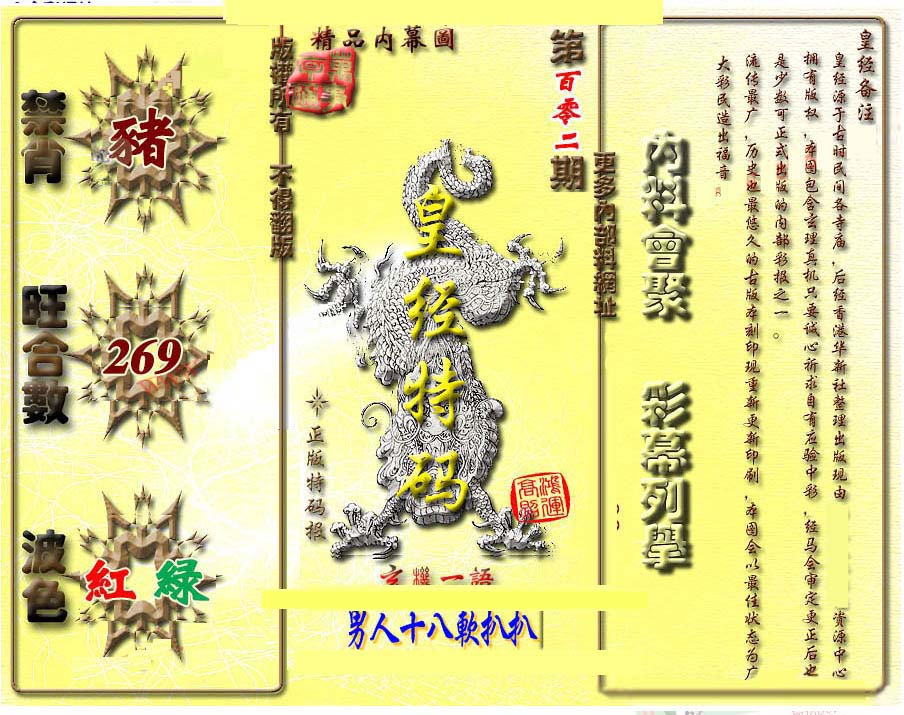 精品內幕圖
版權所有 不得翻版
第百零二期
更多內部料網址
禁肖
豬
旺合數
269
波色
紅 綠
皇经特码
正版特码报
鴻運高照
玄機一語
男人十八軟扒扒
內料會聚
彩幕列舉
皇经备注
皇经源于古时民间各寺庙，后经香港华新社整理出版现由 资源中心
拥有版权，本图包含玄理真机只要诚心祈求自有应验中彩，经马会审定更正后也
是少数可正式出版的内部彩报之一。
流传最广，历史也最悠久的古版本刻印现重新更新印刷，本图会以最佳状态为广
大彩民造出福音